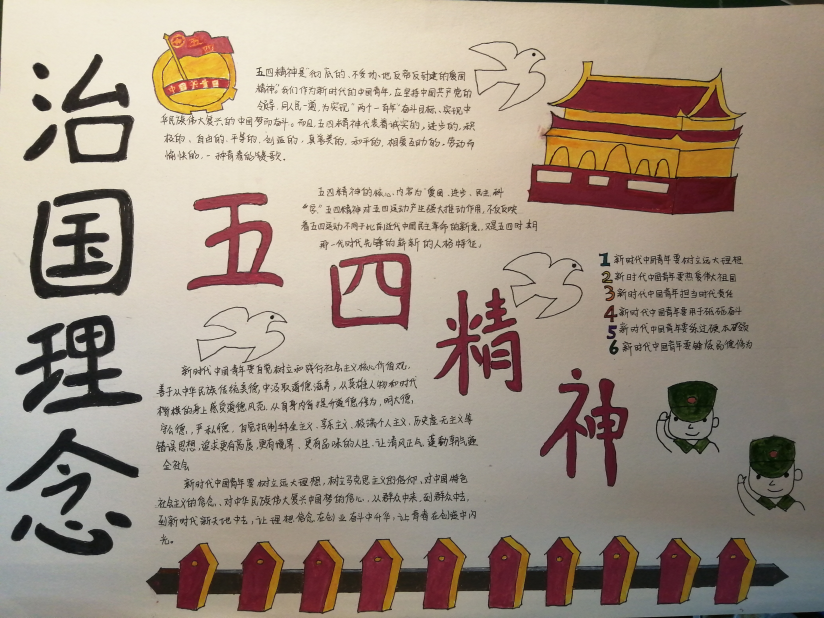 治国理念
五四
中国共青团
五四精神是"彻底的、不妥协地反帝反封建的爱国
精神"我们作为新时代的中国青年,在坚持中国共产党的
领导,同人民一道,为实现"两个一百年"奋斗目标、实现中
华民族伟大复兴的中国梦而奋斗。而且五四精神代表着诚实的,进步的,积
极的,自由的,平等的,创造的,真善美的,和平的,相爱互助的,劳动而
愉快的,一种青春的赞歌。
五四精神的核心内容为"爱国、进步、民主科
学"五四精神对五四运动产生强大推动作用,不仅反映
着五四运动不同于此前近代中国民主革命的新意,又是五四时期
那一代时代先锋的崭新的人格特征。
五四精神
1 新时代中国青年要树立远大理想
2 新时代中国青年要热爱伟大祖国
3 新时代中国青年担当时代责任
4 新时代中国青年要勇于砥砺奋斗
5 新时代中国青年要练过硬本领
6 新时代中国青年要锤炼品德修为
新时代中国青年要自觉树立和践行社会主义核心价值观,
善于从中华民族传统美德中汲取道德滋养,从英雄人物和时代
楷模的身上感受道德风范,从自身内省提升道德修为,明大德,
守公德,严私德,自觉抵制拜金主义、享乐主义、极端个人主义、历史虚无主义等
错误思想,追求更有高度、更有境界、更有品味的人生,让清风正气、蓬勃朝气遍
全社会
新时代中国青年要树立远大理想,树立马克思主义的信仰、对中国特色
社会主义的信念、对中华民族伟大复兴中国梦的信心,从群众中来,到群众中去,
到新时代新天地中去,让理想信念在创业奋斗中升华,让青春在创造中闪
光。